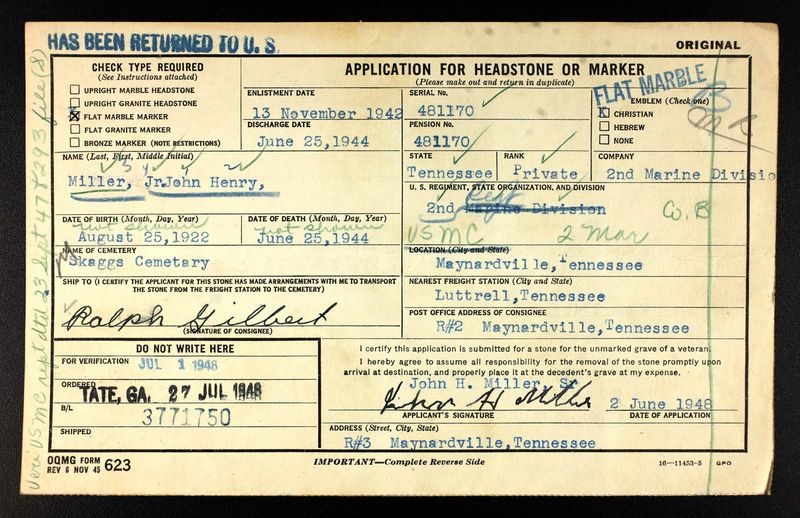 HAS BEEN RETURNED TO U. S.
ORIGINAL
CHECK TYPE REQUIRED
(See Instructions attached)
UPRIGHT MARBLE HEADSTONE
UPRIGHT GRANITE HEADSTONE
X FLAT MARBLE MARKER
FLAT GRANITE MARKER
BRONZE MARKER (NOTE RESTRICTIONS)
APPLICATION FOR HEADSTONE OR MARKER
(Please make out and return in duplicate)
ENLISTMENT DATE
13 November 1942
DISCHARGE DATE
June 25,1944
SERIAL No.
481170
PENSION No.
481170
FLAT MARBLE
B
EMBLEM (Check one)
X CHRISTIAN
HEBREW
NONE
NAME (Last, First, Middle Initial)
Miller, Jr.John Henry,
STATE
Tennessee
RANK
Private
COMPANY
2nd Marine Divisio
U. S. REGIMENT, STATE ORGANIZATION, AND DIVISION
2nd Marine Division
USMC 2 Mar
DATE OF BIRTH (Month, Day, Year)
not shown
August 25,1922
DATE OF DEATH (Month, Day, Year)
not shown
June 25,1944
NAME OF CEMETERY
Skaggs Cemetary
LOCATION (City and State)
Maynardville,Tennessee
SHIP TO (I CERTIFY THE APPLICANT FOR THIS STONE HAS MADE ARRANGEMENTS WITH ME TO TRANSPORT
THE STONE FROM THE FREIGHT STATION TO THE CEMETERY)
Ralph Gilbert
(SIGNATURE OF CONSIGNEE)
NEAREST FREIGHT STATION (City and State)
Luttrell,Tennessee
POST OFFICE ADDRESS OF CONSIGNEE
R#2 Maynardville,Tennessee
DO NOT WRITE HERE
FOR VERIFICATION
JUL 1 1948
ORDERED
TATE, GA. 27 JUL 1948
B/L
3771750
SHIPPED
I certify this application is submitted for a stone for the unmarked grave of a veteran.
I hereby agree to assume all responsibility for the removal of the stone promptly upon
arrival at destination, and properly place it at the decedent's grave at my expense.
John H. Miller, Sr
John H Miller
2 June 1948
APPLICANT'S SIGNATURE
DATE OF APPLICATION
ADDRESS (Street, City, State)
R#3 Maynardville,Tennessee
OQMG FORM
REV 6 NOV 45 623
IMPORTANT—Complete Reverse Side
16—11453-5 GPO
Veri USMC rept dtd 23 Sept 47 & 293 file (8)